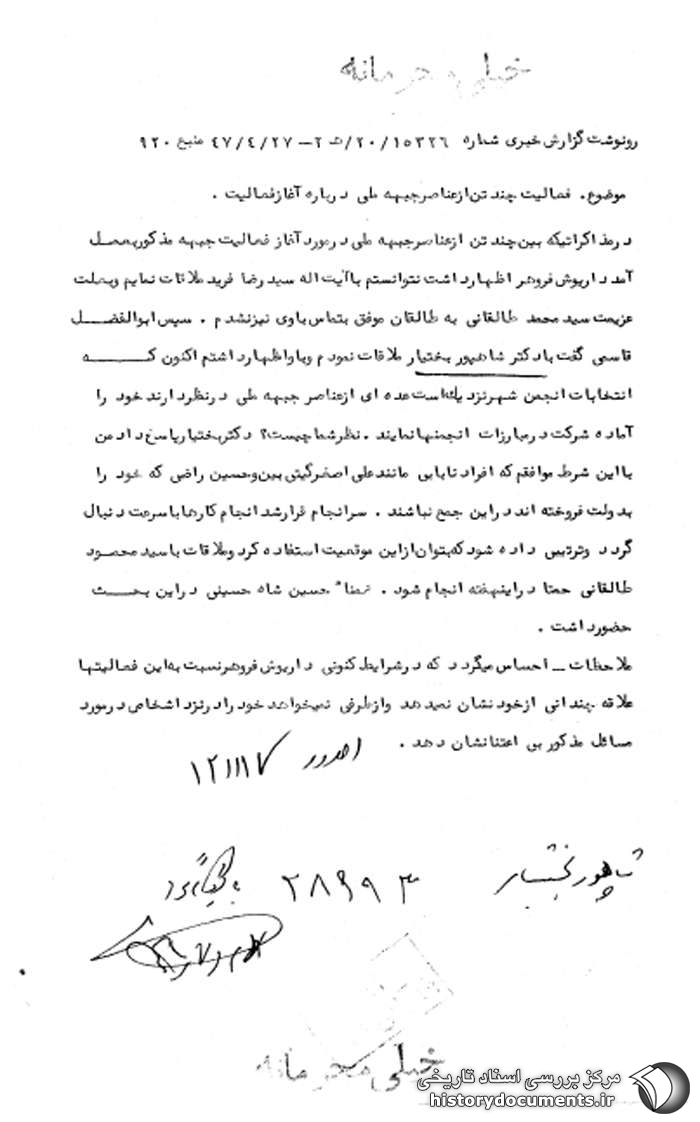 خیلی محرمانه
رونوشت گزارش خبری شماره ۱۵۳۲۶/۲۰/هـ ۲ – ۴۷/۴/۲۷ منبع ۹۲۰
موضوع. فعالیت چند تن از عناصر جبهه ملی درباره آغاز فعالیت .
در مذاکراتیکه بین چند تن از عناصر جبهه ملی در مورد آغاز فعالیت جبهه مذکور بعمل
آمد داریوش فروهر اظهار داشت نتوانستم با آیت اله سید رضا فرید ملاقات نمایم و بعلت
عزیمت سید محمد طالقانی به طالقان موفق بتماس باوی نیز نشدم . سپس ابوالفضل
قاسمی گفت با دکتر شاهپور بختیار ملاقات نمودم و باو اظهار داشتم اکنون که
انتخابات انجمن شهر نزدیک است عده ای از عناصر جبهه ملی در نظر دارند خود را
آماده شرکت در مبارزات انجمنها نمایند . نظر شما چیست؟ دکتر بختیار پاسخ داد من
با این شرط موافقم که افراد نابابی مانند علی اصغر گیتی بین و حسین راضی که خود را
بدولت فروخته اند در این جمع نباشند . سرانجام قرار شد انجام کارها با سرعت دنبال
گردد و ترتیبی داده شود که بتوان از این موقعیت استفاده کرد و ملاقات با سید محمود
طالقانی حتما در اینهفته انجام شود . ضمناً حسین شاه حسینی در این بحث
حضور داشت .
ملاحظات – احساس میگردد که در شرایط کنونی داریوش فروهر نسبت به این فعالیتها
علاقه چندانی از خود نشان نمیدهد و از طرفی نمیخواهد خود را در نزد اشخاص در مورد
مسائل مذکور بی اعتنا نشان دهد .
شاهپور بختیار ۲۸۹۹۳
خیلی محرمانه
مرکز بررسی اسناد تاریخی
historydocuments.ir